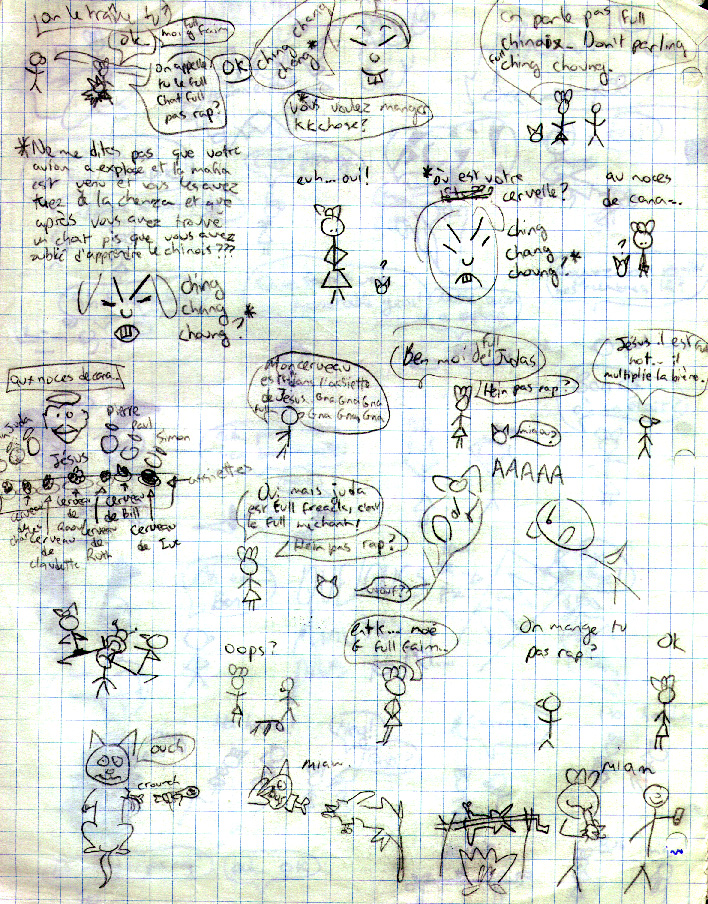 on le traîne tu?
OK.
moi full g faim
On appelle
tu le full
chat full
pas rap?
OK
ching chang
chong*
*Vous voulez manger
kkchose?
On parle pas full
chinois... Don't parling
full ching choung.
*Ne me dites pas que votre
avion a explosé et la mafia
est venu et vous les avez
tuez de la
et que
après vous avez trouvé
un chat pis que vous avez
oublié d'apprendre le chinois???
ching
chang
choung?*
euh... oui!
?
*où est votre
cervelle?
ching
chang
choung?*
au noces
de cana...
?
aux noces de cana...
Juda
Jésus
Pierre
Paul
Simon
assiettes
cerveau
de
chat
cerveau
de
claudette
cerveau
de
cerveau
de
Ruth
cerveau
de Bill
cerveau
de Luc
Mon cerveau
est full dans l'assiette
de Jésus. Gna Gna Gna
Gna Gna Gna
Ben moi full de Judas
Hein pas rap?
miaou?
Jésus il est full
hot... il
multiplie la bière.
Oui mais juda
est full freak, c'est
le full méchant!
Hein pas rap?
ouaf?
AAAAA
oops?
entk... moé
G full faim...
On mange tu
pas rap?
OK
ouch
crounch
miam.
miam